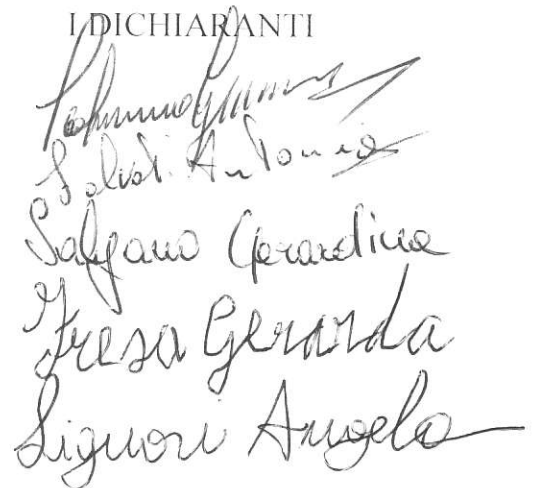 I DICHIARANTI
Salvati Antonio
Salzano Gerardina
Fresa Gerarda
Liguori Angelo